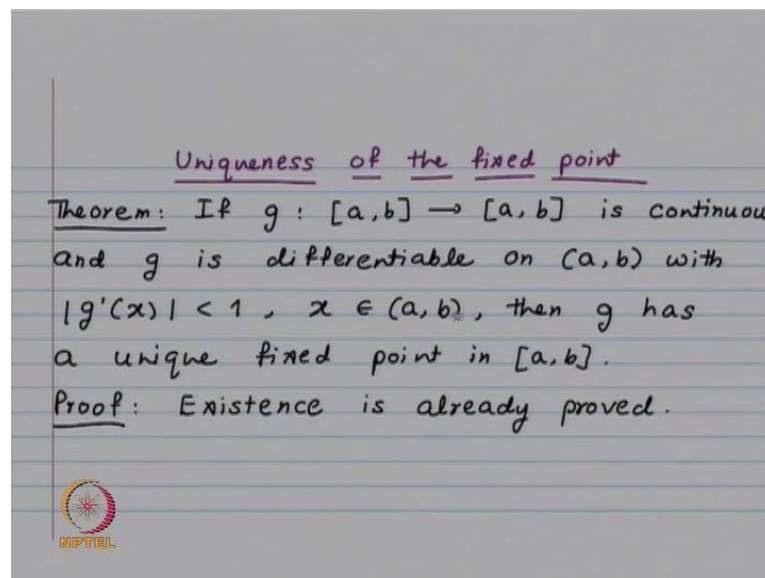 Uniqueness of the fixed point
Theorem: If g : [a,b] → [a,b] is continuou
and g is differentiable on (a,b) with
|g'(x)| < 1, x ∈ (a,b), then g has
a unique fixed point in [a,b].
Proof: Existence is already proved.
NPTEL